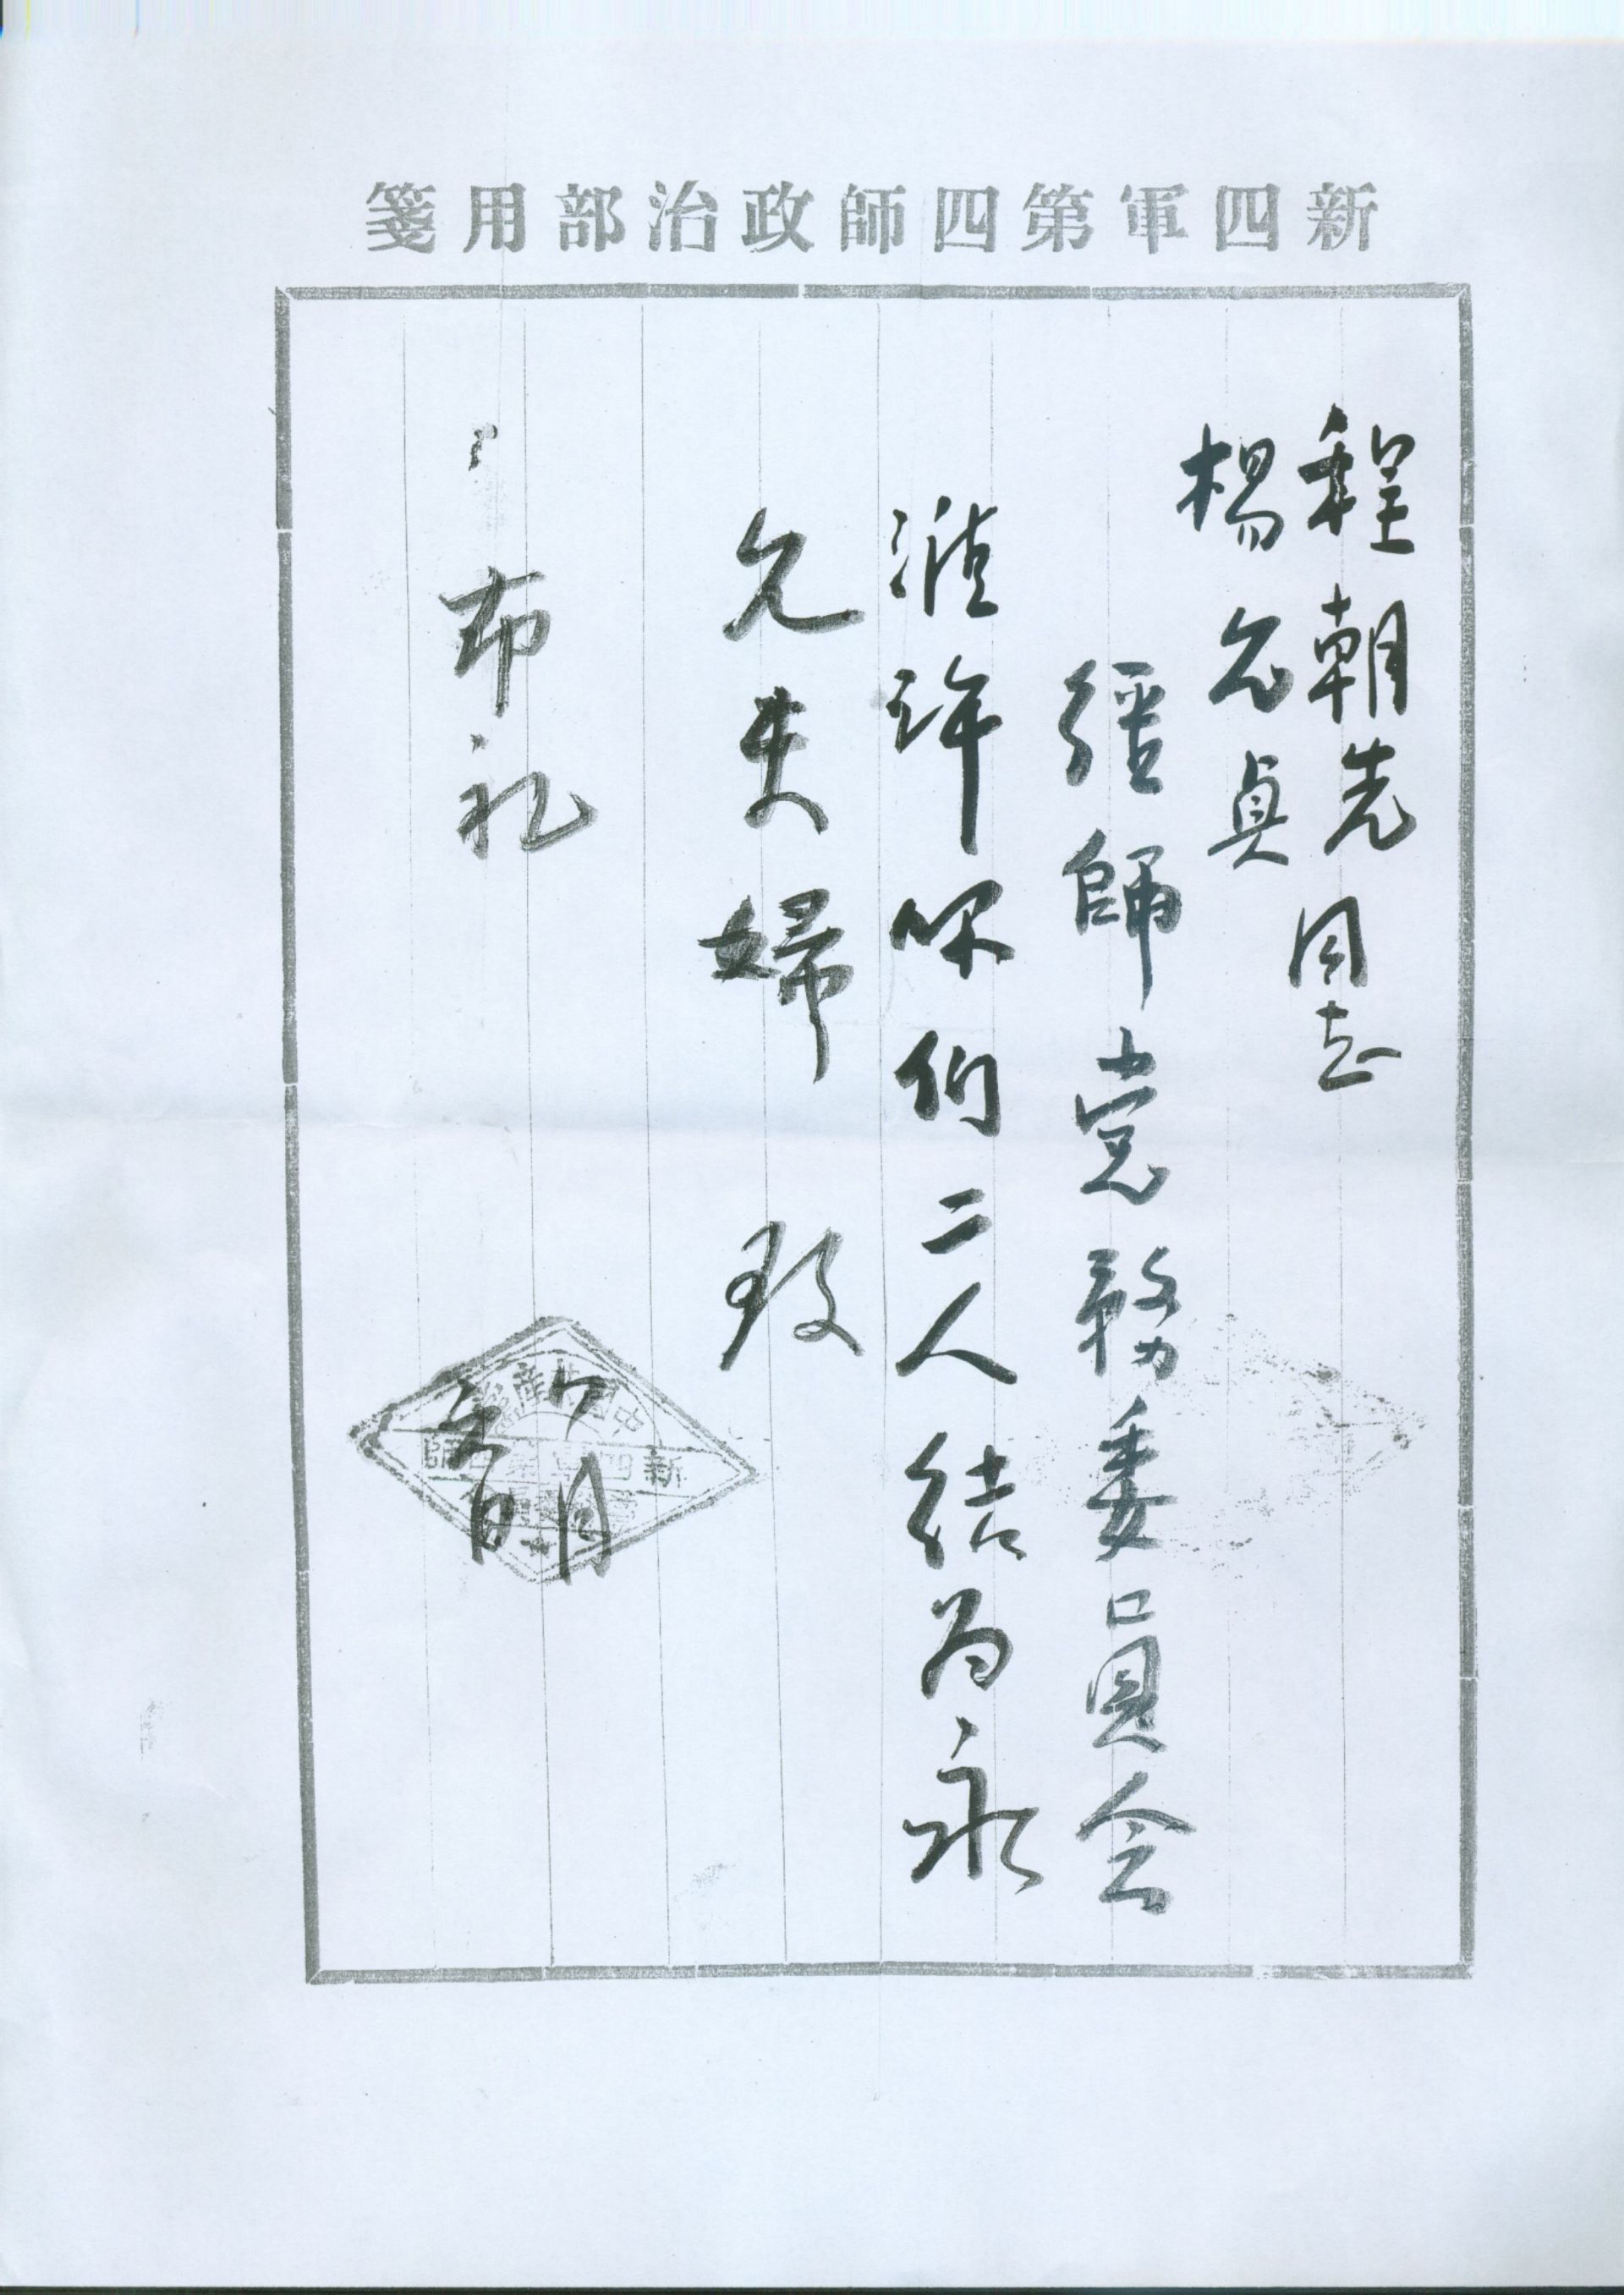 新四軍第四師政治部用箋
程朝先同志
楊允貞
經師党務委員会
准許你们二人结为永
久夫婦 致
布礼
中國共產黨
新四軍第四師